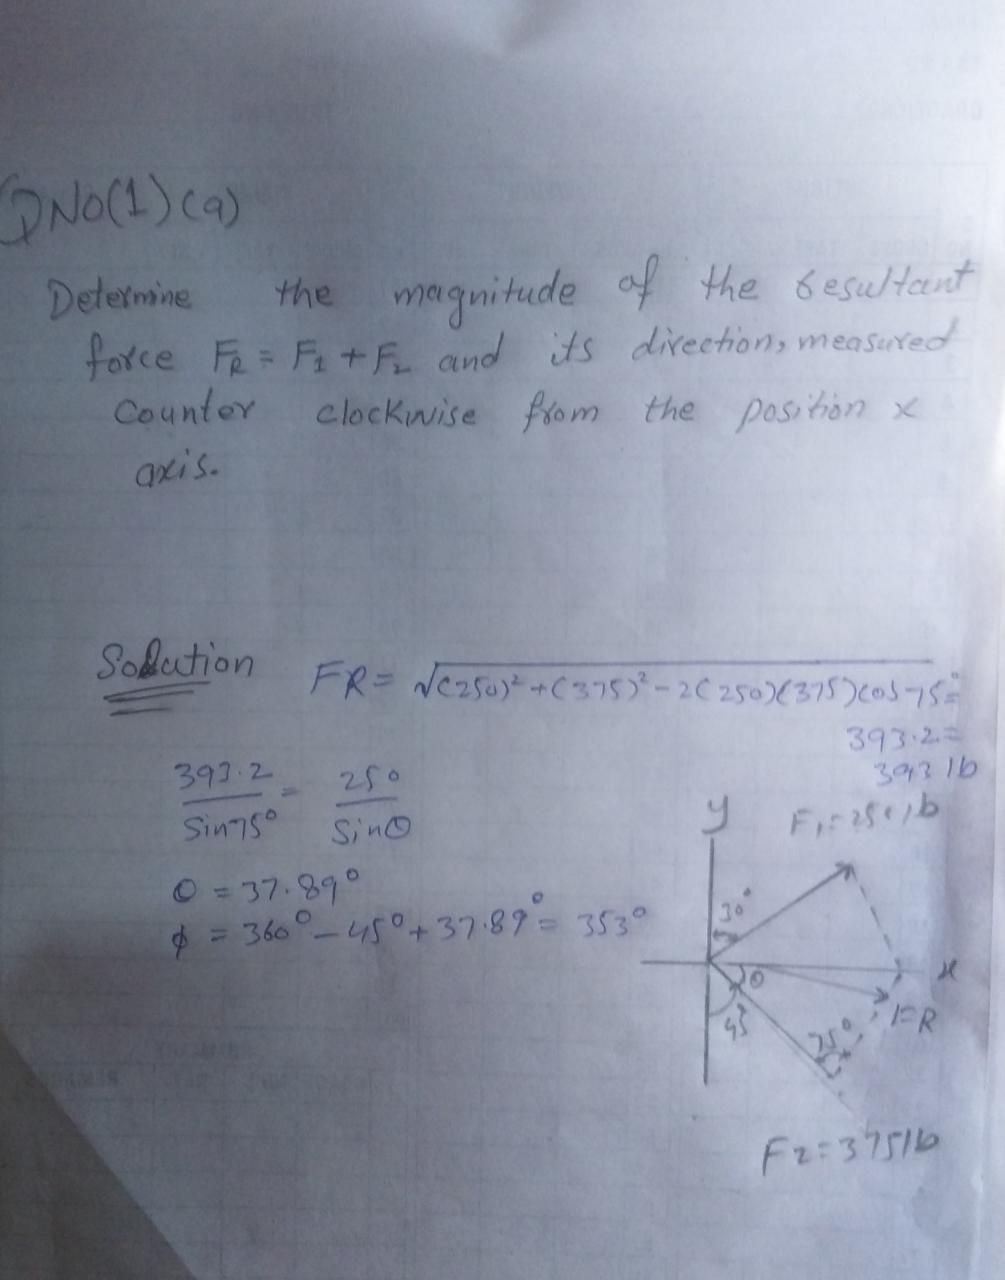 QNo(1)(a)
Determine the magnitude of the resultant
force FR = F1 + F2 and its direction, measured
Counter clockwise from the position x
axis.
Solution FR = √(250)² + (375)² - 2(250)(375)cos75° =
393.2 =
393 lb
393.2/Sin75° = 250/Sinθ
θ = 37.89°
ϕ = 360° - 45° + 37.89° = 353°
y
F1 = 250 lb
30°
x
θ
FR
45
75°
F2 = 375lb